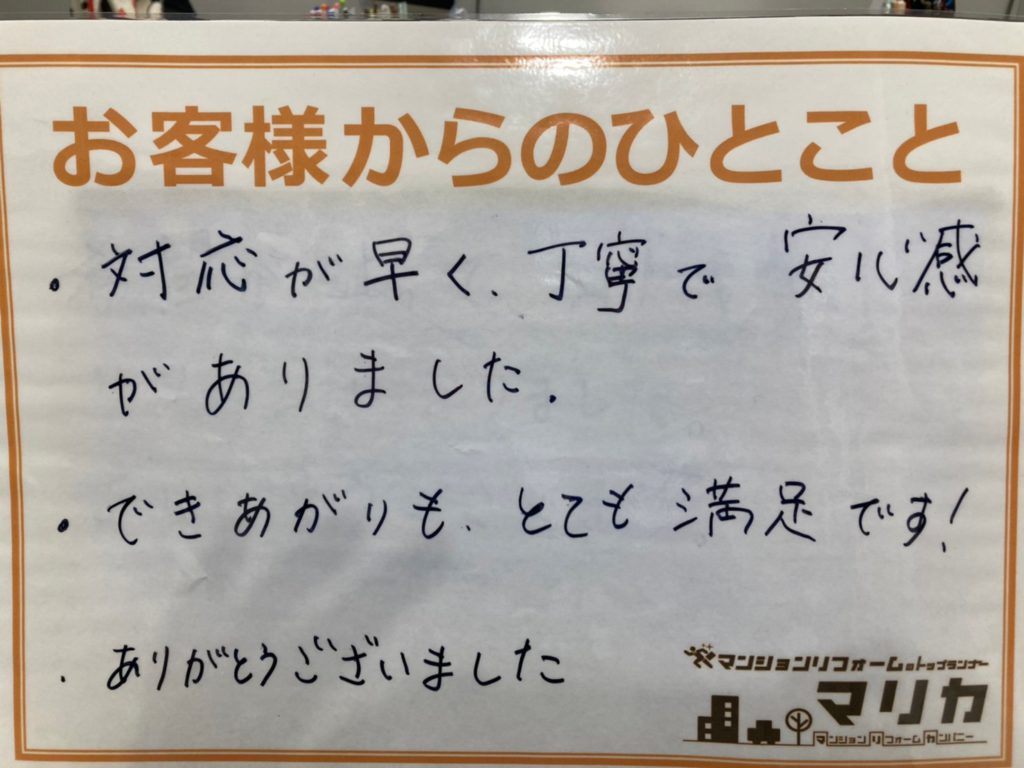 お客様からのひとこと
・対応が早く、丁寧で安心感
がありました.
・できあがりも、とても満足です!
・ありがとうございました
マンションリフォームのトップランナー
マリカ
マンションリフォームカンパニー